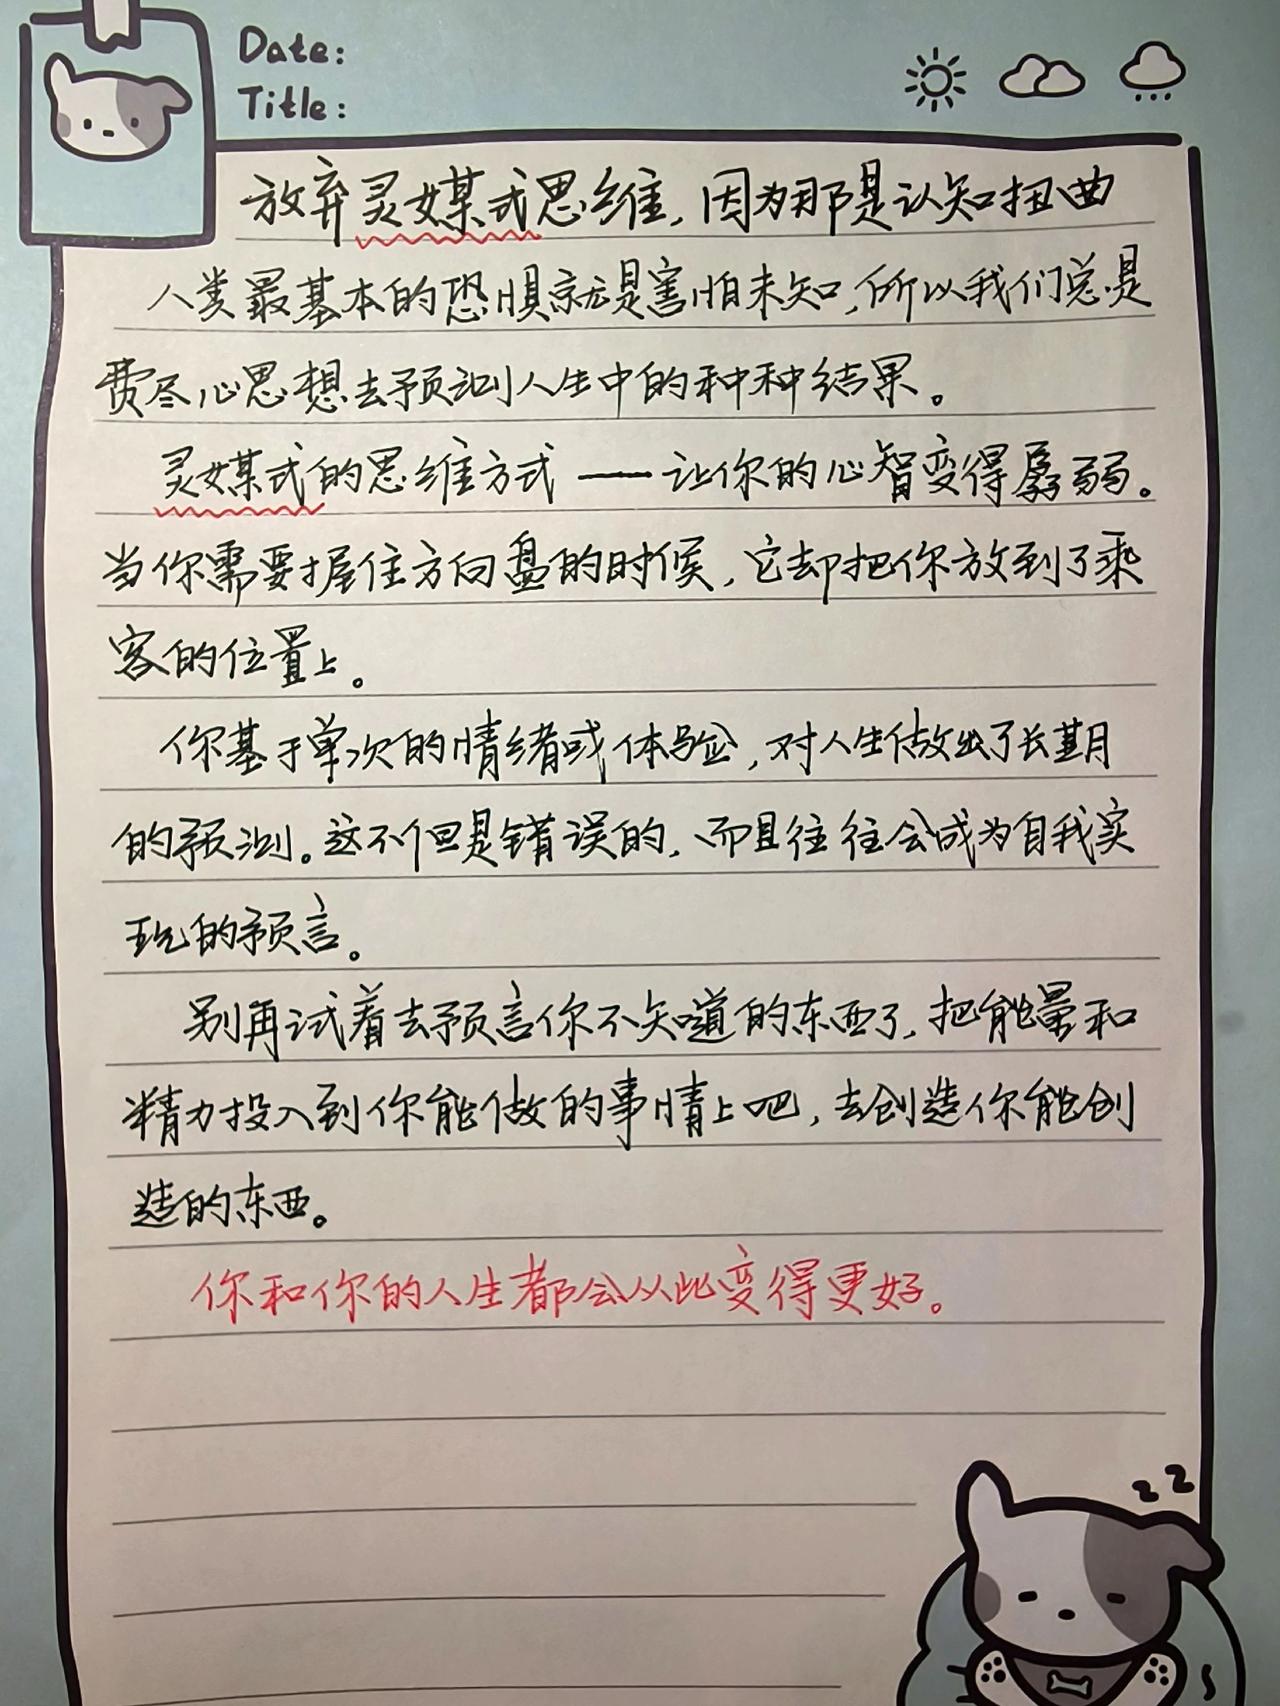 Date:
Title:
放弃灵媒式思维，因为那是认知扭曲
人类最基本的恐惧就是害怕未知，所以我们总是
费尽心思想去预测人生中的种种结果。
灵媒式的思维方式——让你的心智变得孱弱。
当你需要握住方向盘的时候，它却把你放到了乘
客的位置上。
你基于单次的情绪或体验，对人生做出了长期
的预测。这不但是错误的，而且往往会成为自我实
现的预言。
别再试着去预言你不知道的东西了，把能量和
精力投入到你能做的事情上吧，去创造你能创
造的东西。
你和你的人生都会从此变得更好。
zz